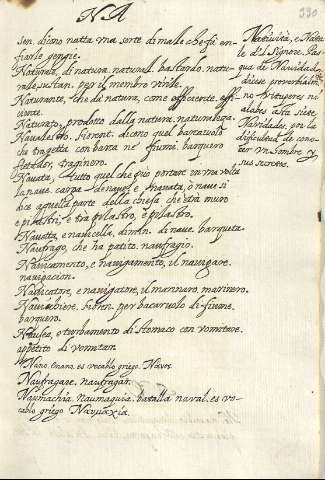 NA
330
sen. dicono natta una sorte di male che fà en-
fiar le gengie.
Naturale, di natura. natural. bastardo. natu-
rale, sustan. per il membro virile.
Naturante, che dà natura, come efficiente. effi-
ciente.
Naturato, prodotto dalla natura. naturaleza.
Navalestro, fiorent. dicono quel barcaruolo
che tragetta con barca ne' fiumi. barquero
fletador, traginero.
Navata, tutto quel che può portare in una volta
la nave. carga de naue. e navata, o naue si
dice aquella parte della chiesa che stà muro
e pilastri, e tra pilastro, e pilastro.
Navetta, e navicella, dimin. di naue. barqueta.
Naufrago, che ha patito naufragio.
Navicamento, e navigamento, il navigare.
navigacion.
Navicatore, e navigatore, il marinero. marinero.
Navichiere. fioren. per barcaruolo di fiume.
barquero.
Nausea, o turbamento di stomaco con vomitare.
appetito di vomitar.
Nano. Enano. es vocablo griego. Νάνος.
Naufragare. naufragar.
Naumachia. naumaquia. batalla naval. es vo-
cablo griego Ναυμαχία.
Natività, e Nata-
le del Signore. Pas-
qua de Navidad.
dicese proverbialm.
no Arrugueres ni
alabes asta siete
Navidades, por la
dificultad de cono-
cer un hombre y
sus secretos.